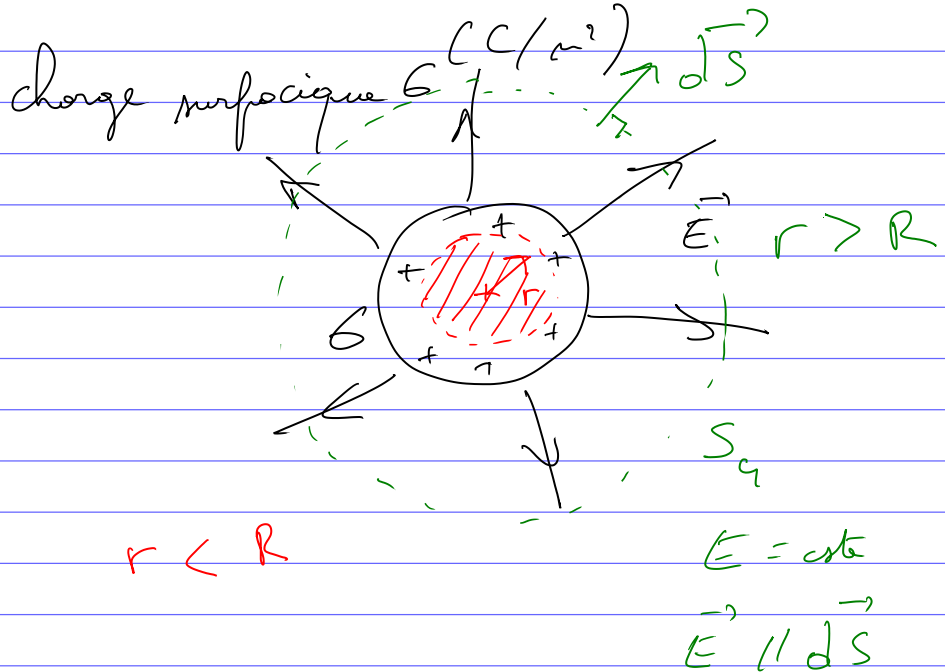 charge surfacique σ (C/m²)
dS⃗
E⃗
r > R
+ + +
r
σ
+ +
S_G
r < R
E = cste
E⃗ // dS⃗